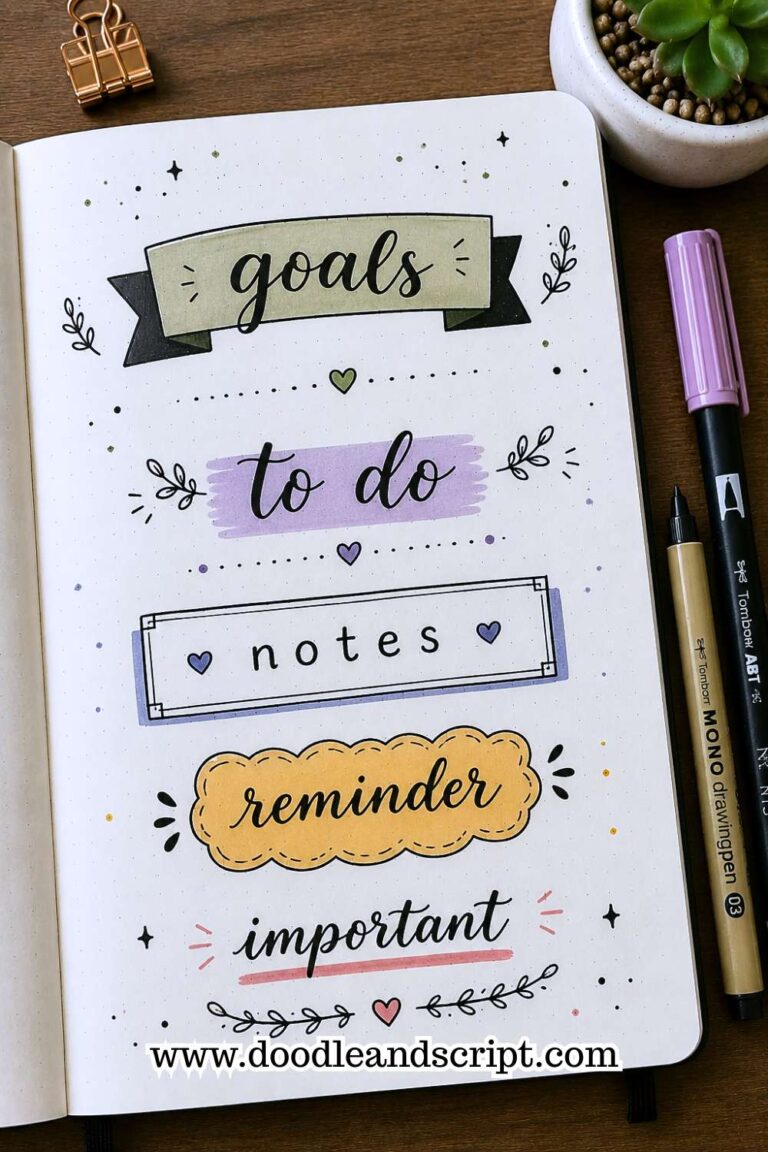 goals
to do
notes
reminder
important
www.doodleandscript.com
Tombow ABT
Tombow MONO drawingpen 03